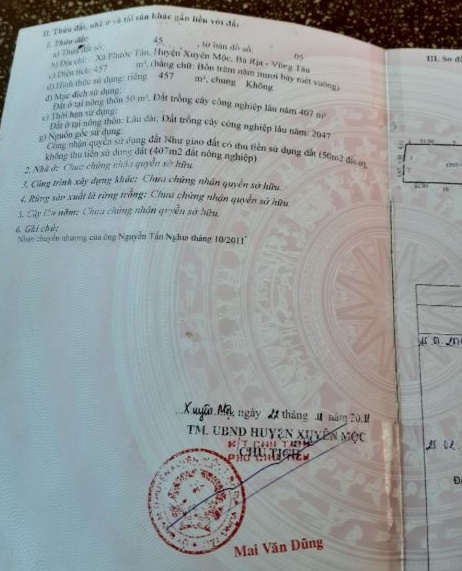 II. Thửa đất, nhà ở và tài sản khác gắn liền với đất
1. Thửa đất:
a) Thửa đất số: 45, tờ bản đồ số: 05
b) Địa chỉ: Xã Phước Tân, Huyện Xuyên Mộc, Bà Rịa - Vũng Tàu
c) Diện tích: 457 m², (bằng chữ: Bốn trăm năm mươi bảy mét vuông)
d) Hình thức sử dụng: riêng 457 m², chung Không
đ) Mục đích sử dụng:
Đất ở tại nông thôn 50 m². Đất trồng cây công nghiệp lâu năm 407 m²
e) Thời hạn sử dụng:
Đất ở tại nông thôn: Lâu dài; Đất trồng cây công nghiệp lâu năm: 2047
g) Nguồn gốc sử dụng:
Công nhận quyền sử dụng đất Như giao đất có thu tiền sử dụng đất (50m2 đất ở),
không thu tiền sử dụng đất (407m2 đất nông nghiệp)
2. Nhà ở: Chưa chứng nhận quyền sở hữu.
3. Công trình xây dựng khác: Chưa chứng nhận quyền sở hữu.
4. Rừng sản xuất là rừng trồng: Chưa chứng nhận quyền sở hữu
5. Cây lâu năm: Chưa chứng nhận quyền sở hữu.
6. Ghi chú:
Nhận chuyển nhượng của ông Nguyễn Tấn tháng 10/2011
Xuyên Mộc, ngày 22 tháng 11 năm 2011
TM. UBND HUYỆN XUYÊN MỘC
K/T CHỦ TỊCH
CHỦ TỊCH
PHÓ CHỦ TỊCH
Mai Văn Dũng
III. Sơ đ